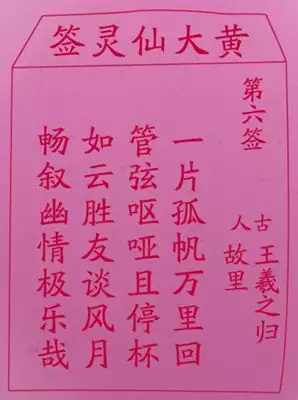 黄大仙灵签
第六签
古人 王羲之归故里
一片孤帆万里回
管弦呕哑且停杯
如云胜友谈风月
畅叙幽情极乐哉